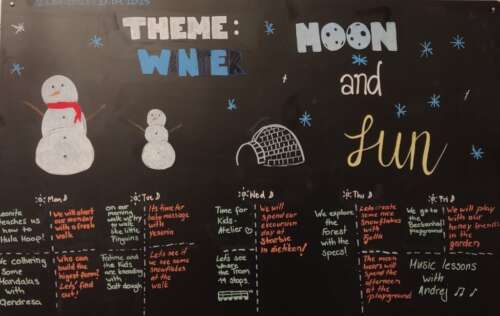 THEME:
WINTER
MOON
and
Sun
Mon
Tue
Wed
Thu
Fri
teaches us
how to
Hula Hoop!
We will start
our monday
with a fresh
walk.
on our
morning
walk we try
to walk
like little
Pinguins
It's time for
fairy massage
with
Time for
Kids-
Atelier
We will
spend our
excursion
day at
in
We explore
the
Forest
with the
specs!
Lets create
some nice
snowflakes
with
We go to the
playground
We will play
with our
furry friends
in the
garden
We
Some
Mandalas
with
Qendresa
Who can
build the
biggest
Let's find
out!
and the
Kids are
kneading
with
Salt dough
Let's see if
we see some
Snowflakes
at the
walk
Lets see
where
the Tram
11 stops.
The moon
bears will
spend the
afternoon
at the
playground
Music lessons
with
Andrej